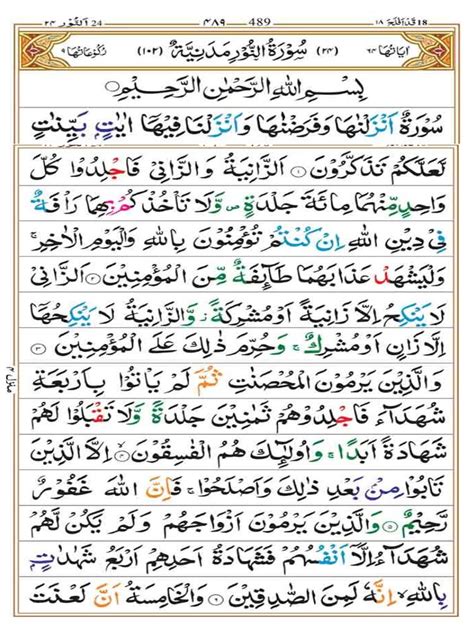 قد افلح ١٨ 18 489 ٤٨٩ النور ٢٤ 24
اٰیاتها ٦٤ (٢٤) سُوْرَةُ النُّوْرِ مَدَنِيَّةٌ (١٠٢) رکوعاتها ٩
بِسْمِ اللهِ الرَّحْمٰنِ الرَّحِيْمِ
سُوْرَةٌ اَنْزَلْنٰهَا وَفَرَضْنٰهَا وَاَنْزَلْنَا فِيْهَاۤ اٰيٰتٍۭ بَيِّنٰتٍ
لَّعَلَّكُمْ تَذَكَّرُوْنَ ۝١ اَلزَّانِيَةُ وَالزَّانِيْ فَاجْلِدُوْا كُلَّ
وَاحِدٍ مِّنْهُمَا مِائَةَ جَلْدَةٍ ۪ وَّلَا تَاْخُذْكُمْ بِهِمَا رَاْفَةٌ
فِيْ دِيْنِ اللهِ اِنْ كُنْتُمْ تُؤْمِنُوْنَ بِاللهِ وَالْيَوْمِ الْاٰخِرِ ۚ
وَلْيَشْهَدْ عَذَابَهُمَا طَآئِفَةٌ مِّنَ الْمُؤْمِنِيْنَ ۝٢ اَلزَّانِيْ
لَا يَنْكِحُ اِلَّا زَانِيَةً اَوْ مُشْرِكَةً ۫ وَّالزَّانِيَةُ لَا يَنْكِحُهَاۤ
اِلَّا زَانٍ اَوْ مُشْرِكٌ ۚ وَحُرِّمَ ذٰلِكَ عَلَى الْمُؤْمِنِيْنَ ۝٣
وَالَّذِيْنَ يَرْمُوْنَ الْمُحْصَنٰتِ ثُمَّ لَمْ يَاْتُوْا بِاَرْبَعَةِ
شُهَدَآءَ فَاجْلِدُوْهُمْ ثَمٰنِيْنَ جَلْدَةً وَّلَا تَقْبَلُوْا لَهُمْ
شَهَادَةً اَبَدًا ۚ وَاُولٰٓئِكَ هُمُ الْفٰسِقُوْنَ ۝٤ اِلَّا الَّذِيْنَ
تَابُوْا مِنْۢ بَعْدِ ذٰلِكَ وَاَصْلَحُوْا ۚ فَاِنَّ اللهَ غَفُوْرٌ
رَّحِيْمٌ ۝٥ وَالَّذِيْنَ يَرْمُوْنَ اَزْوَاجَهُمْ وَلَمْ يَكُنْ لَّهُمْ
شُهَدَآءُ اِلَّاۤ اَنْفُسُهُمْ فَشَهَادَةُ اَحَدِهِمْ اَرْبَعُ شَهٰدٰتٍۭ
بِاللهِ ۙ اِنَّهٗ لَمِنَ الصّٰدِقِيْنَ ۝٦ وَالْخَامِسَةُ اَنَّ لَعْنَتَ
منزل ٤